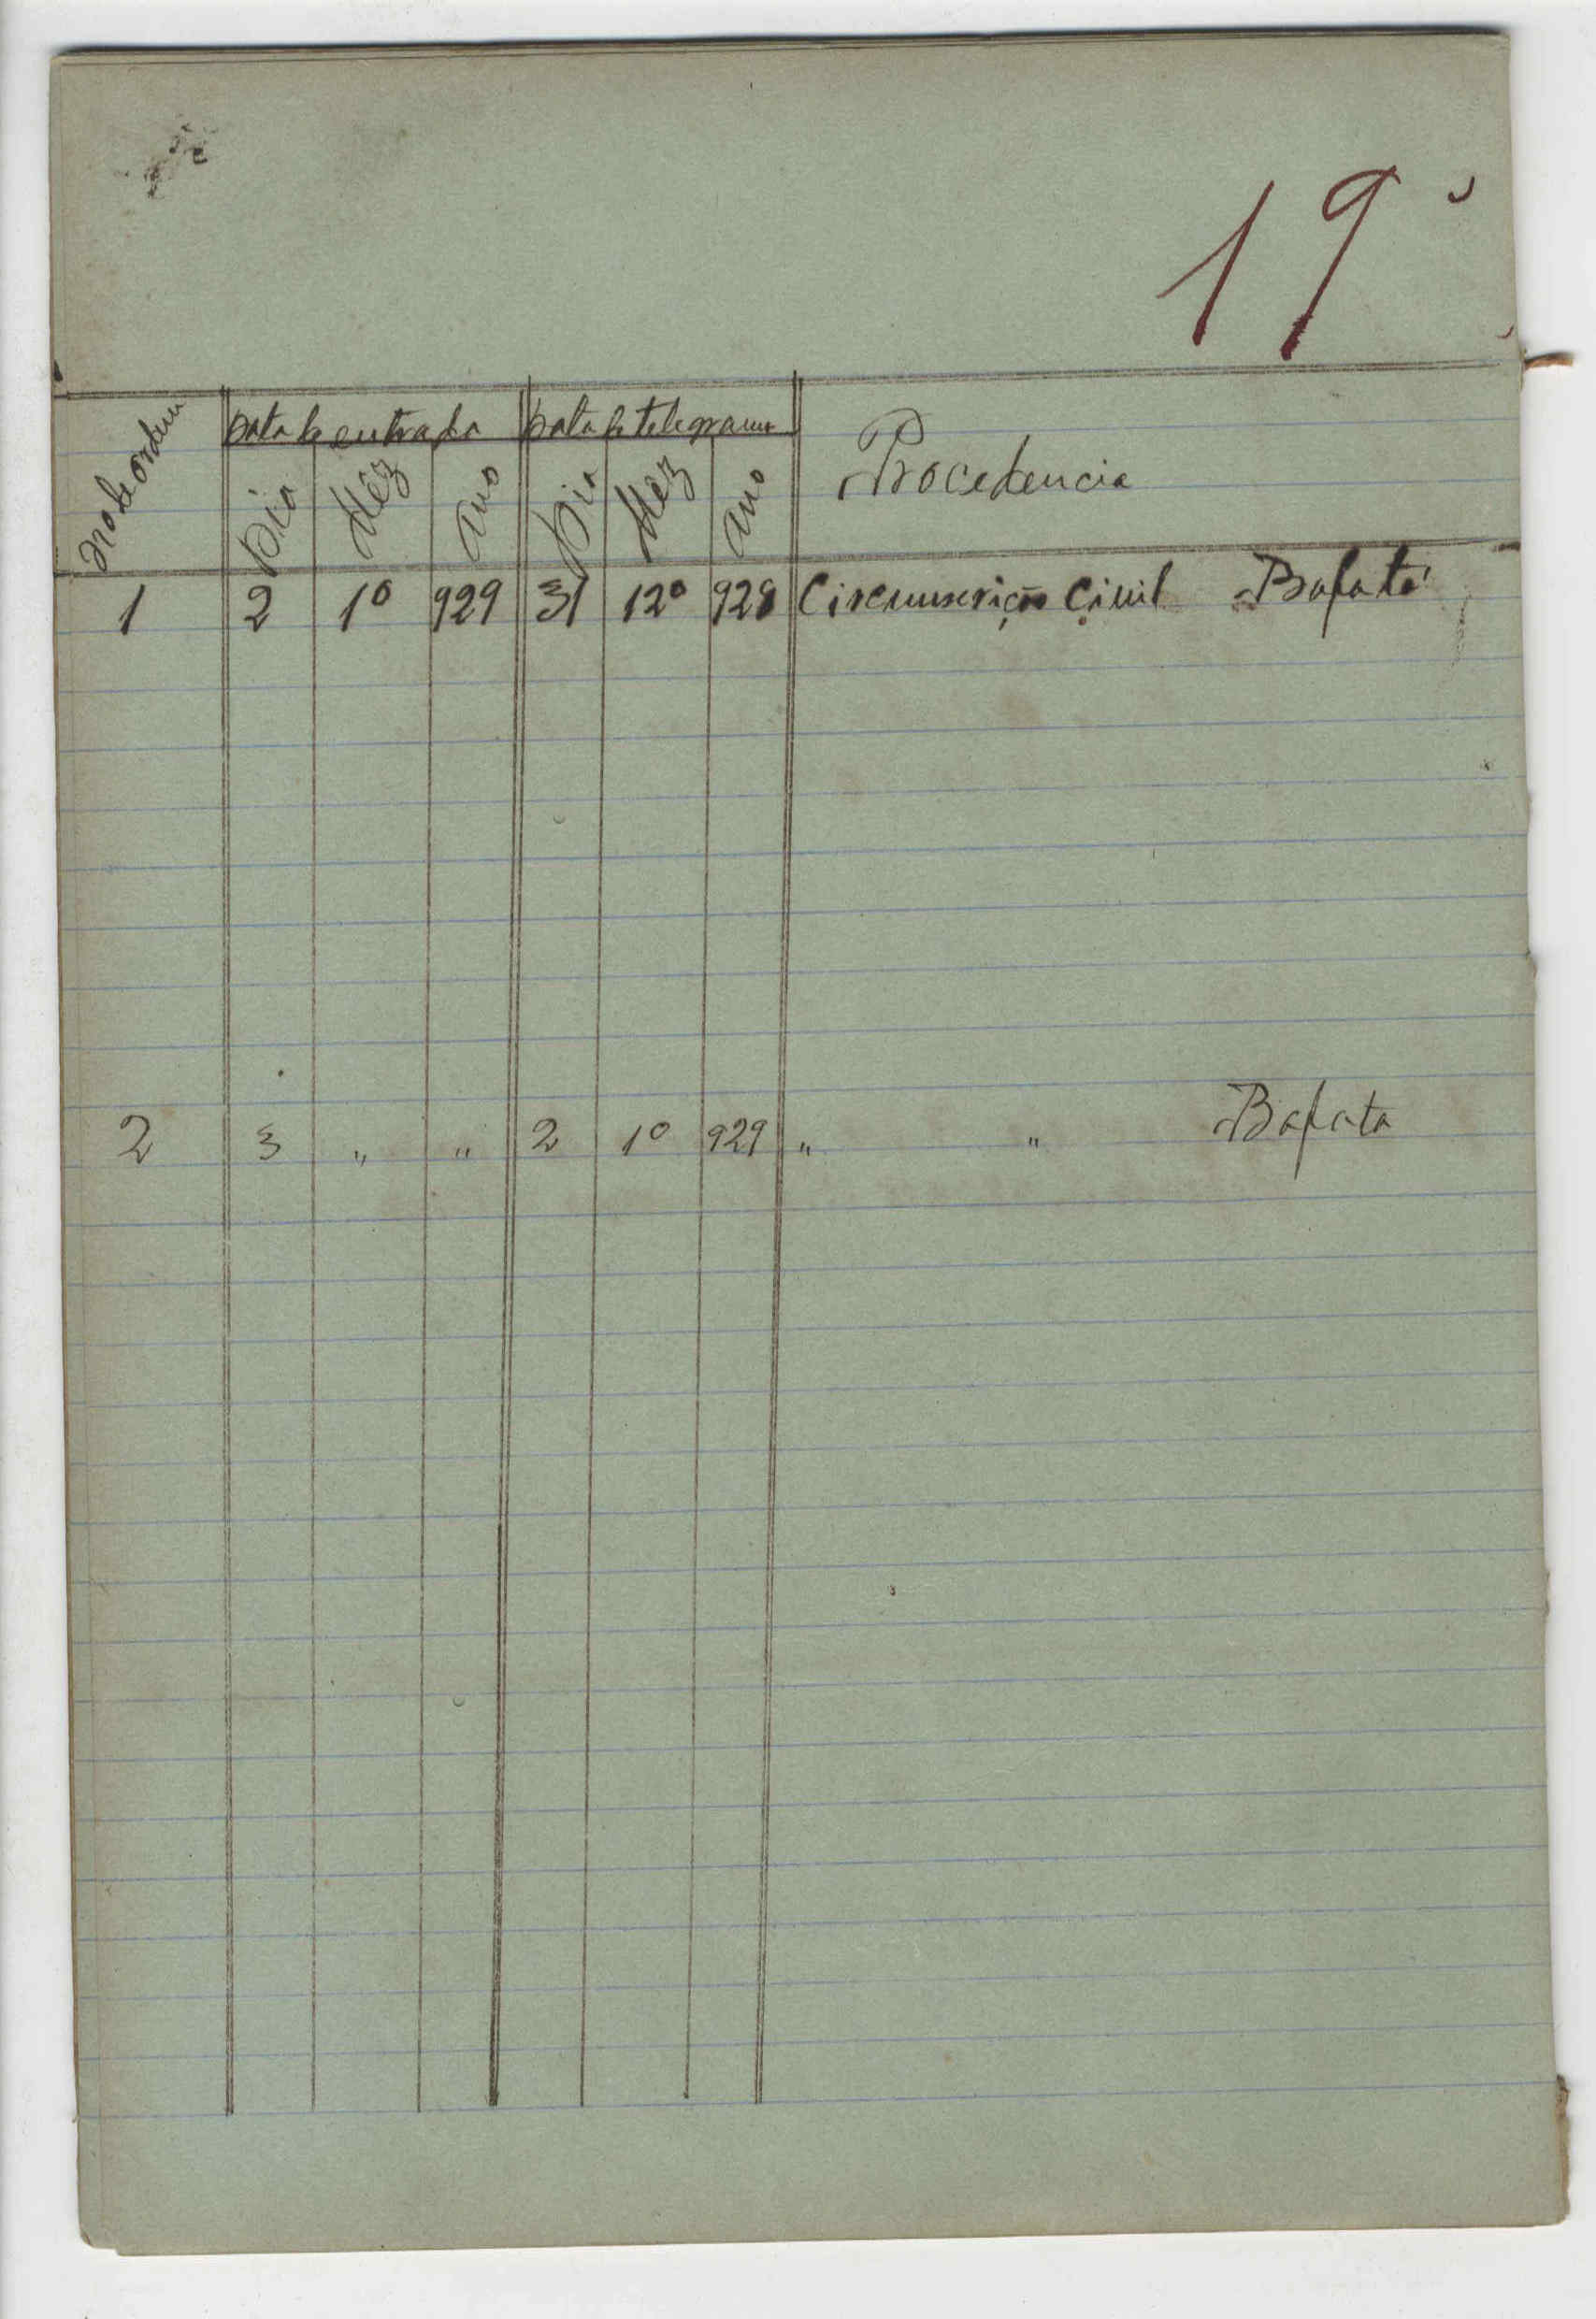 19
Nº de ordem
Data de entrada Data de telegrama
Procedencia
Dia Mêz Ano Dia Mêz Ano
1 2 1º 929 31 12º 928 Circumscrição Civil Bafatá
2 3 " " 2 1º 929 " " Bafata